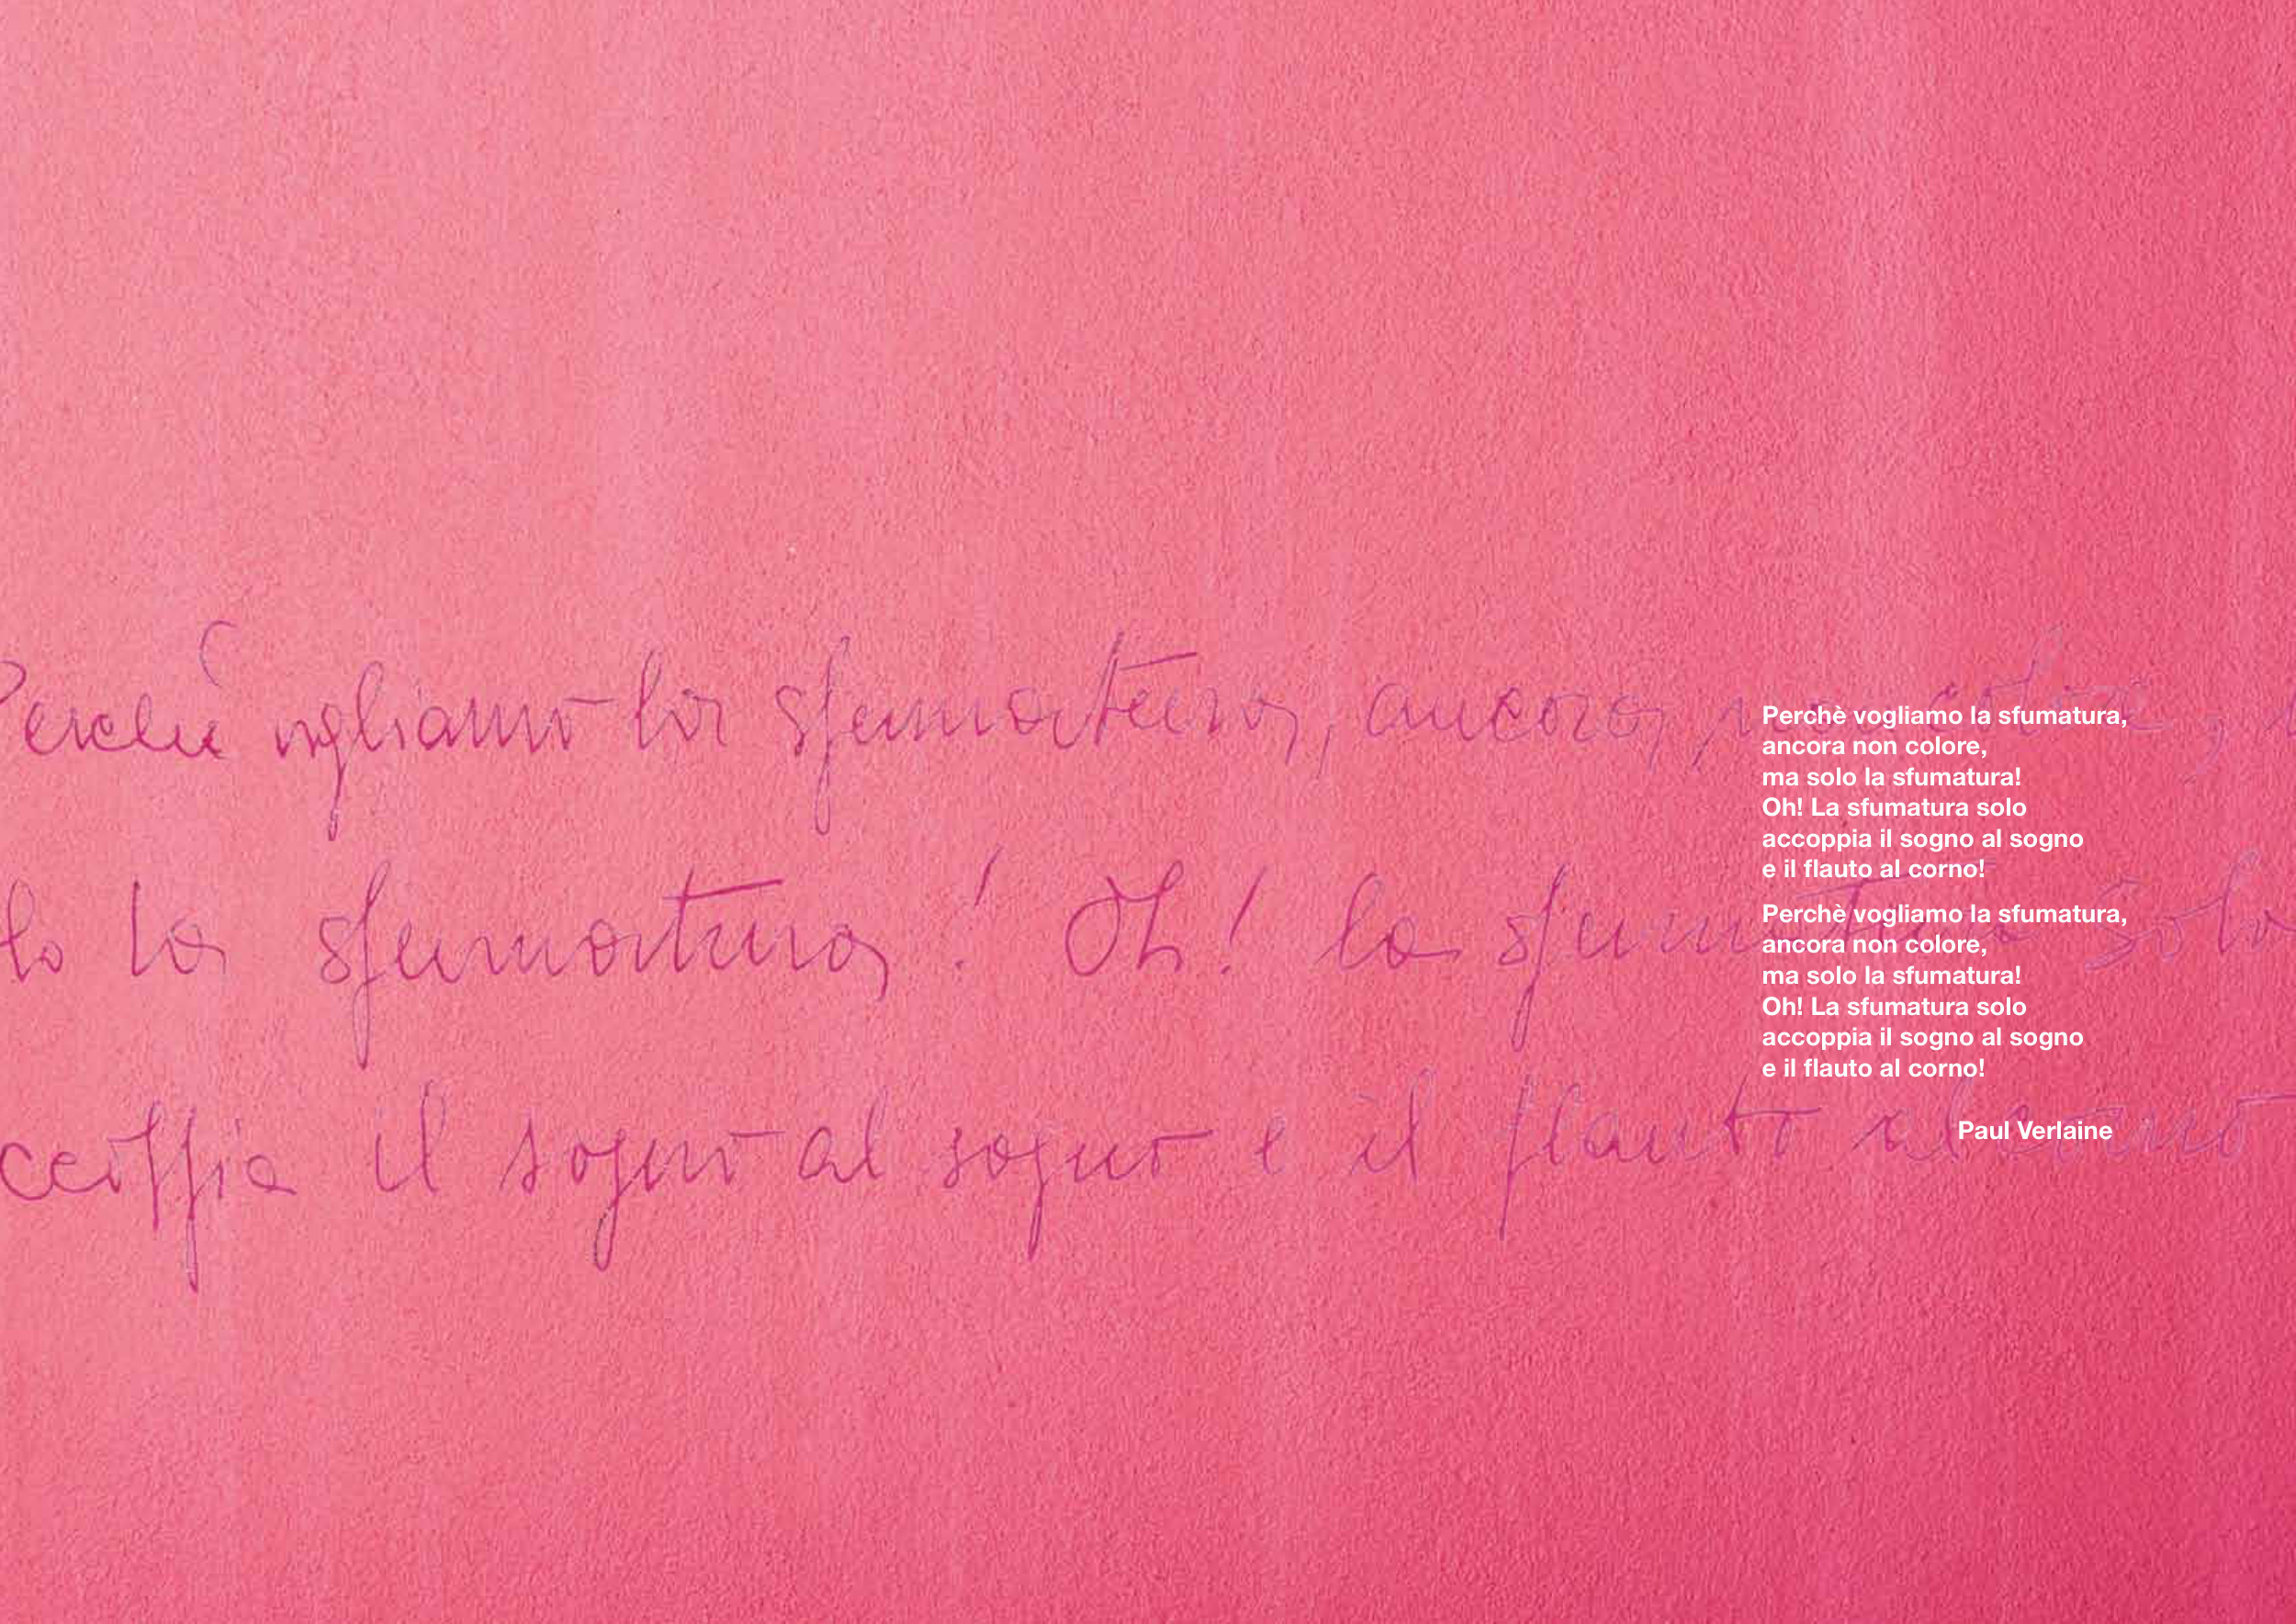 Perchè vogliamo la sfumatura, ancora non colore,
lo la sfumatura! Oh! la sfumatura solo
ccoppia il sogno al sogno e il flauto al corno
Perchè vogliamo la sfumatura,
ancora non colore,
ma solo la sfumatura!
Oh! La sfumatura solo
accoppia il sogno al sogno
e il flauto al corno!
Perchè vogliamo la sfumatura,
ancora non colore,
ma solo la sfumatura!
Oh! La sfumatura solo
accoppia il sogno al sogno
e il flauto al corno!
Paul Verlaine